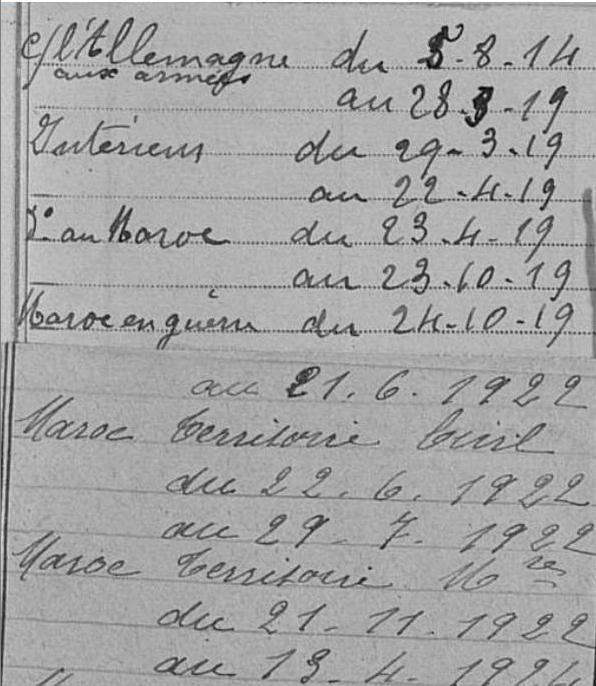 c/ l'Allemagne du 5-8-14
aux armées
au 28.3-19
Intérieur du 29-3-19
au 22-4-19
d° au Maroc du 23-4-19
au 23-10-19
Maroc en guerre du 24-10-19
au 21.6.1922
Maroc territoire Civil
du 22.6.1922
au 29-7.1922
Maroc territoire M res
du 21-11.1922
au 13-4-1924